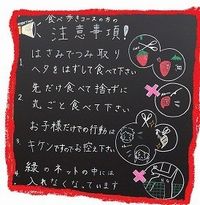 食べ歩きコースの方の
注意事項!
1. はさみでつみ取り
ヘタをはずして食べて下さい
2. 先だけ食べ捨てずに
丸ごと食べて下さい
3. お子様だけでの行動は
キケンですのでお控え下さい
4. 緑のネットの中には
入れなくなっています